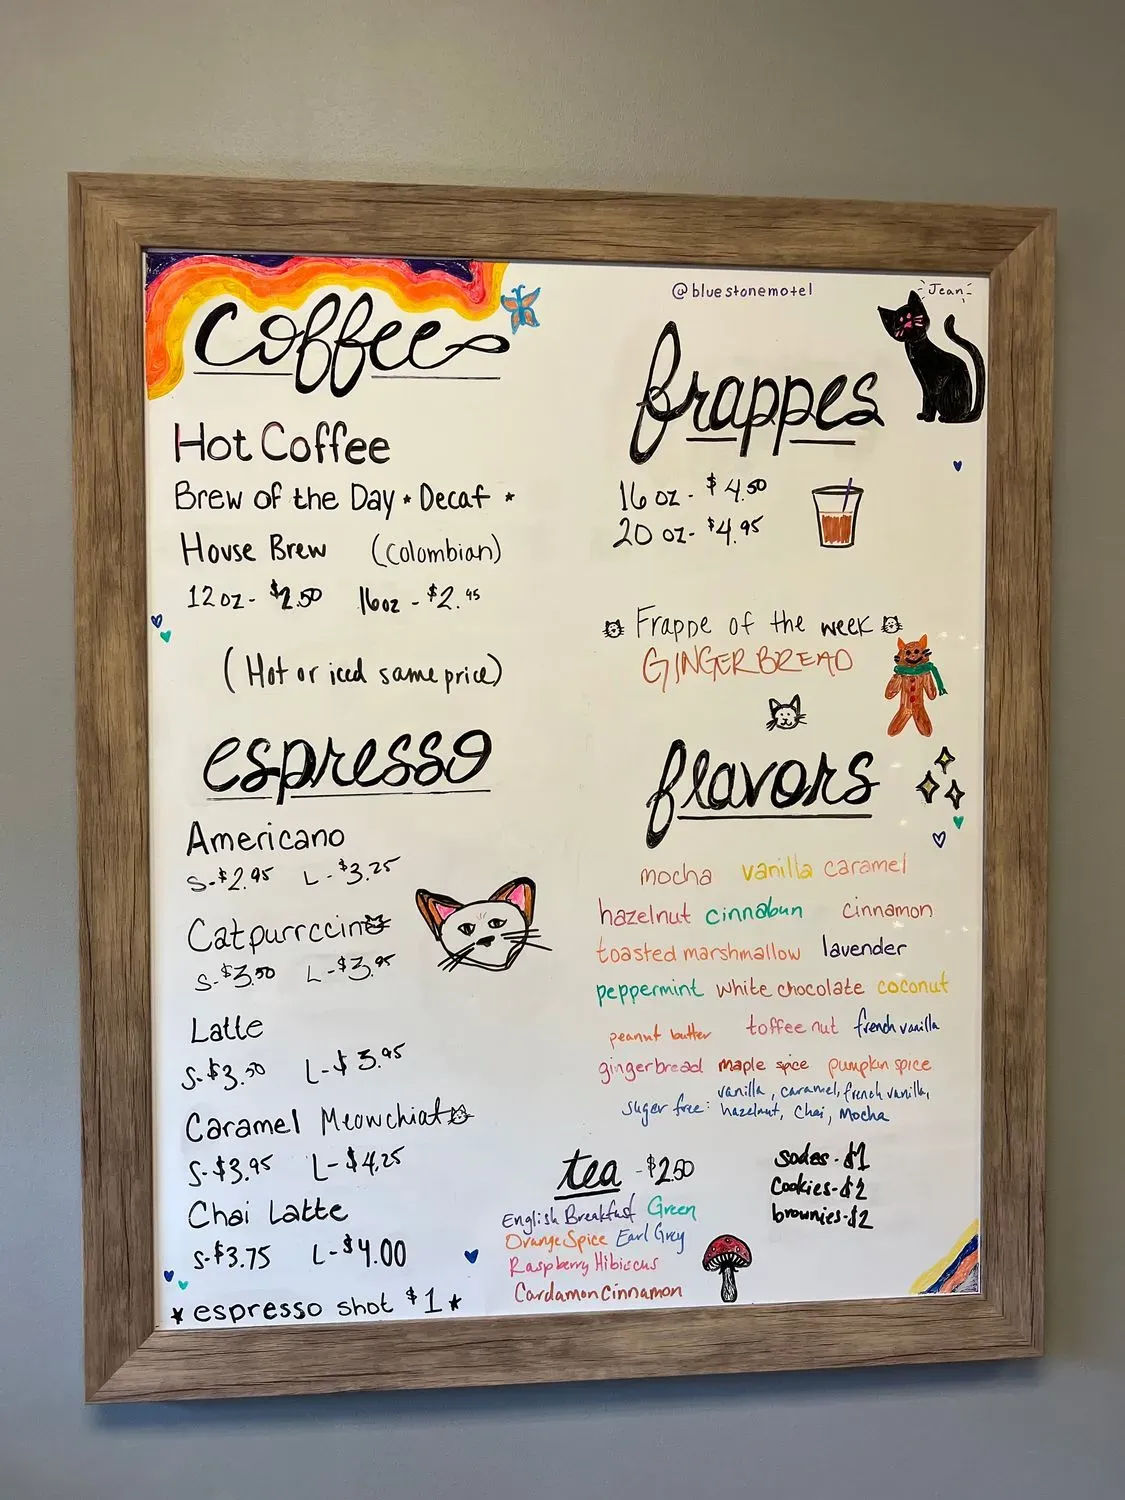 coffee
Hot Coffee
Brew of the Day * Decaf *
House Brew (Colombian)
12 oz - $2.50 16oz - $2.45
(Hot or iced same price)
espresso
Americano
S-$2.95 L-$3.25
Catpurrccino
S-$3.50 L-$3.95
Latte
S-$3.50 L-$3.95
Caramel Meowchiato
S-$3.95 L-$4.25
Chai Latte
S-$3.75 L-$4.00
* espresso shot $1 *
@bluestonemotel
Jean
frappes
16 oz - $4.50
20 oz - $4.95
Frappe of the week
GINGERBREAD
flavors
mocha vanilla caramel
hazelnut cinnabun cinnamon
toasted marshmallow lavender
peppermint white chocolate coconut
peanut butter toffee nut french vanilla
gingerbread maple spice pumpkin spice
sugar free: vanilla, caramel, french vanilla,
hazelnut, Chai, Mocha
tea - $2.50
English Breakfast Green
Orange Spice Earl Grey
Raspberry Hibiscus
Cardamon Cinnamon
sodas - $1
Cookies - $2
brownies - $2